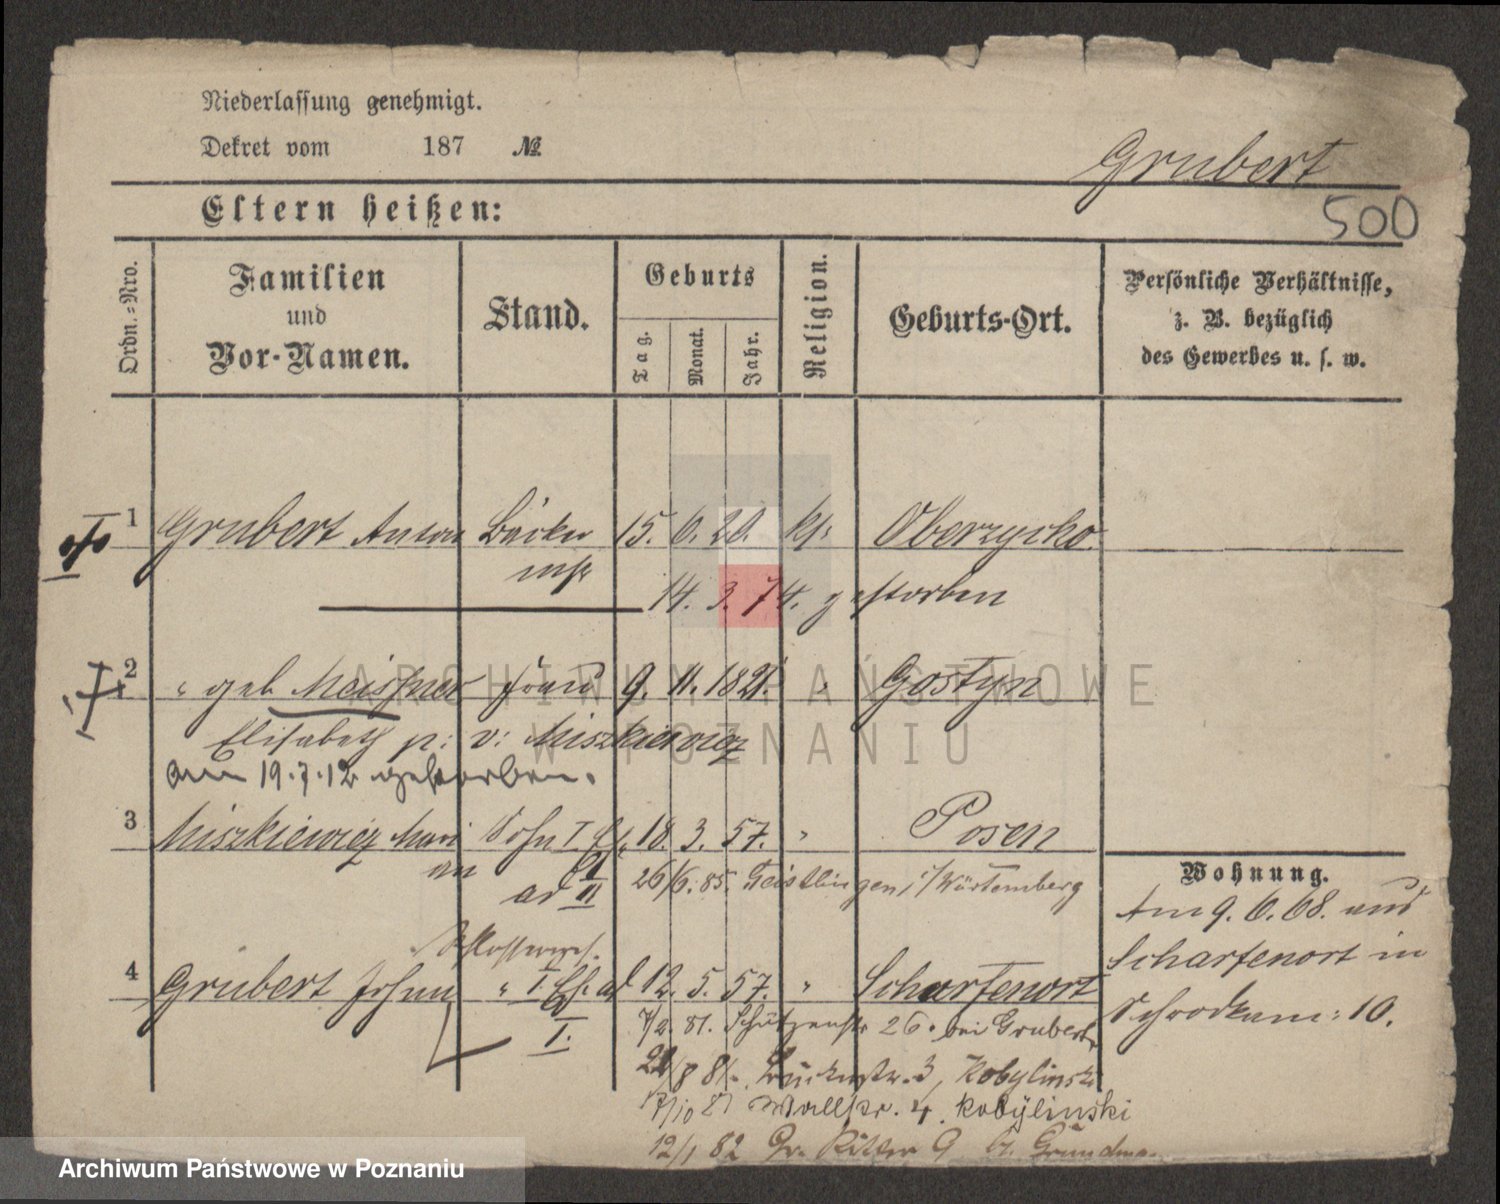 Niederlassung genehmigt.
Dekret vom 187 №
Grubert
500
Eltern heißen:
Ordn.-Nro.
Familien
und
Vor-Namen.
Stand.
Geburts
Tag.
Monat.
Jahr.
Religion.
Geburts-Ort.
Persönliche Verhältnisse,
z. B. bezüglich
des Gewerbes u. s. w.
1 Grubert Anton Bäcker 15. 6. 20. kth Oberzycko.
mstr
14. 3. 74. gestorben
2 " geb Meissner Frau 9. 11. 1821. " Gostyn
Elisabeth p: v: Miszkiewicz
am 19.7.12 gestorben.
3 Miszkiewicz Mari Sohn I. 18. 3. 57. " Posen
an ad II 26/6. 85. Geislingen i/Würtemberg
Wohnung.
Am 9. 6. 68. aus
Scharfenort in
Schrodkam: 10.
4 Grubert Johann " I. Eh. ad 12. 5. 57. " Scharfenort
I.
7/2. 81. Schützenstr 26. bei Grubert
21/8 81. 3, Kobylinski
17/10 81 Wallstr. 4. Kobylinski
12/1 82 Gr. Ritter 9
ARCHIWUM PAŃSTWOWE
W POZNANIU
Archiwum Państwowe w Poznaniu